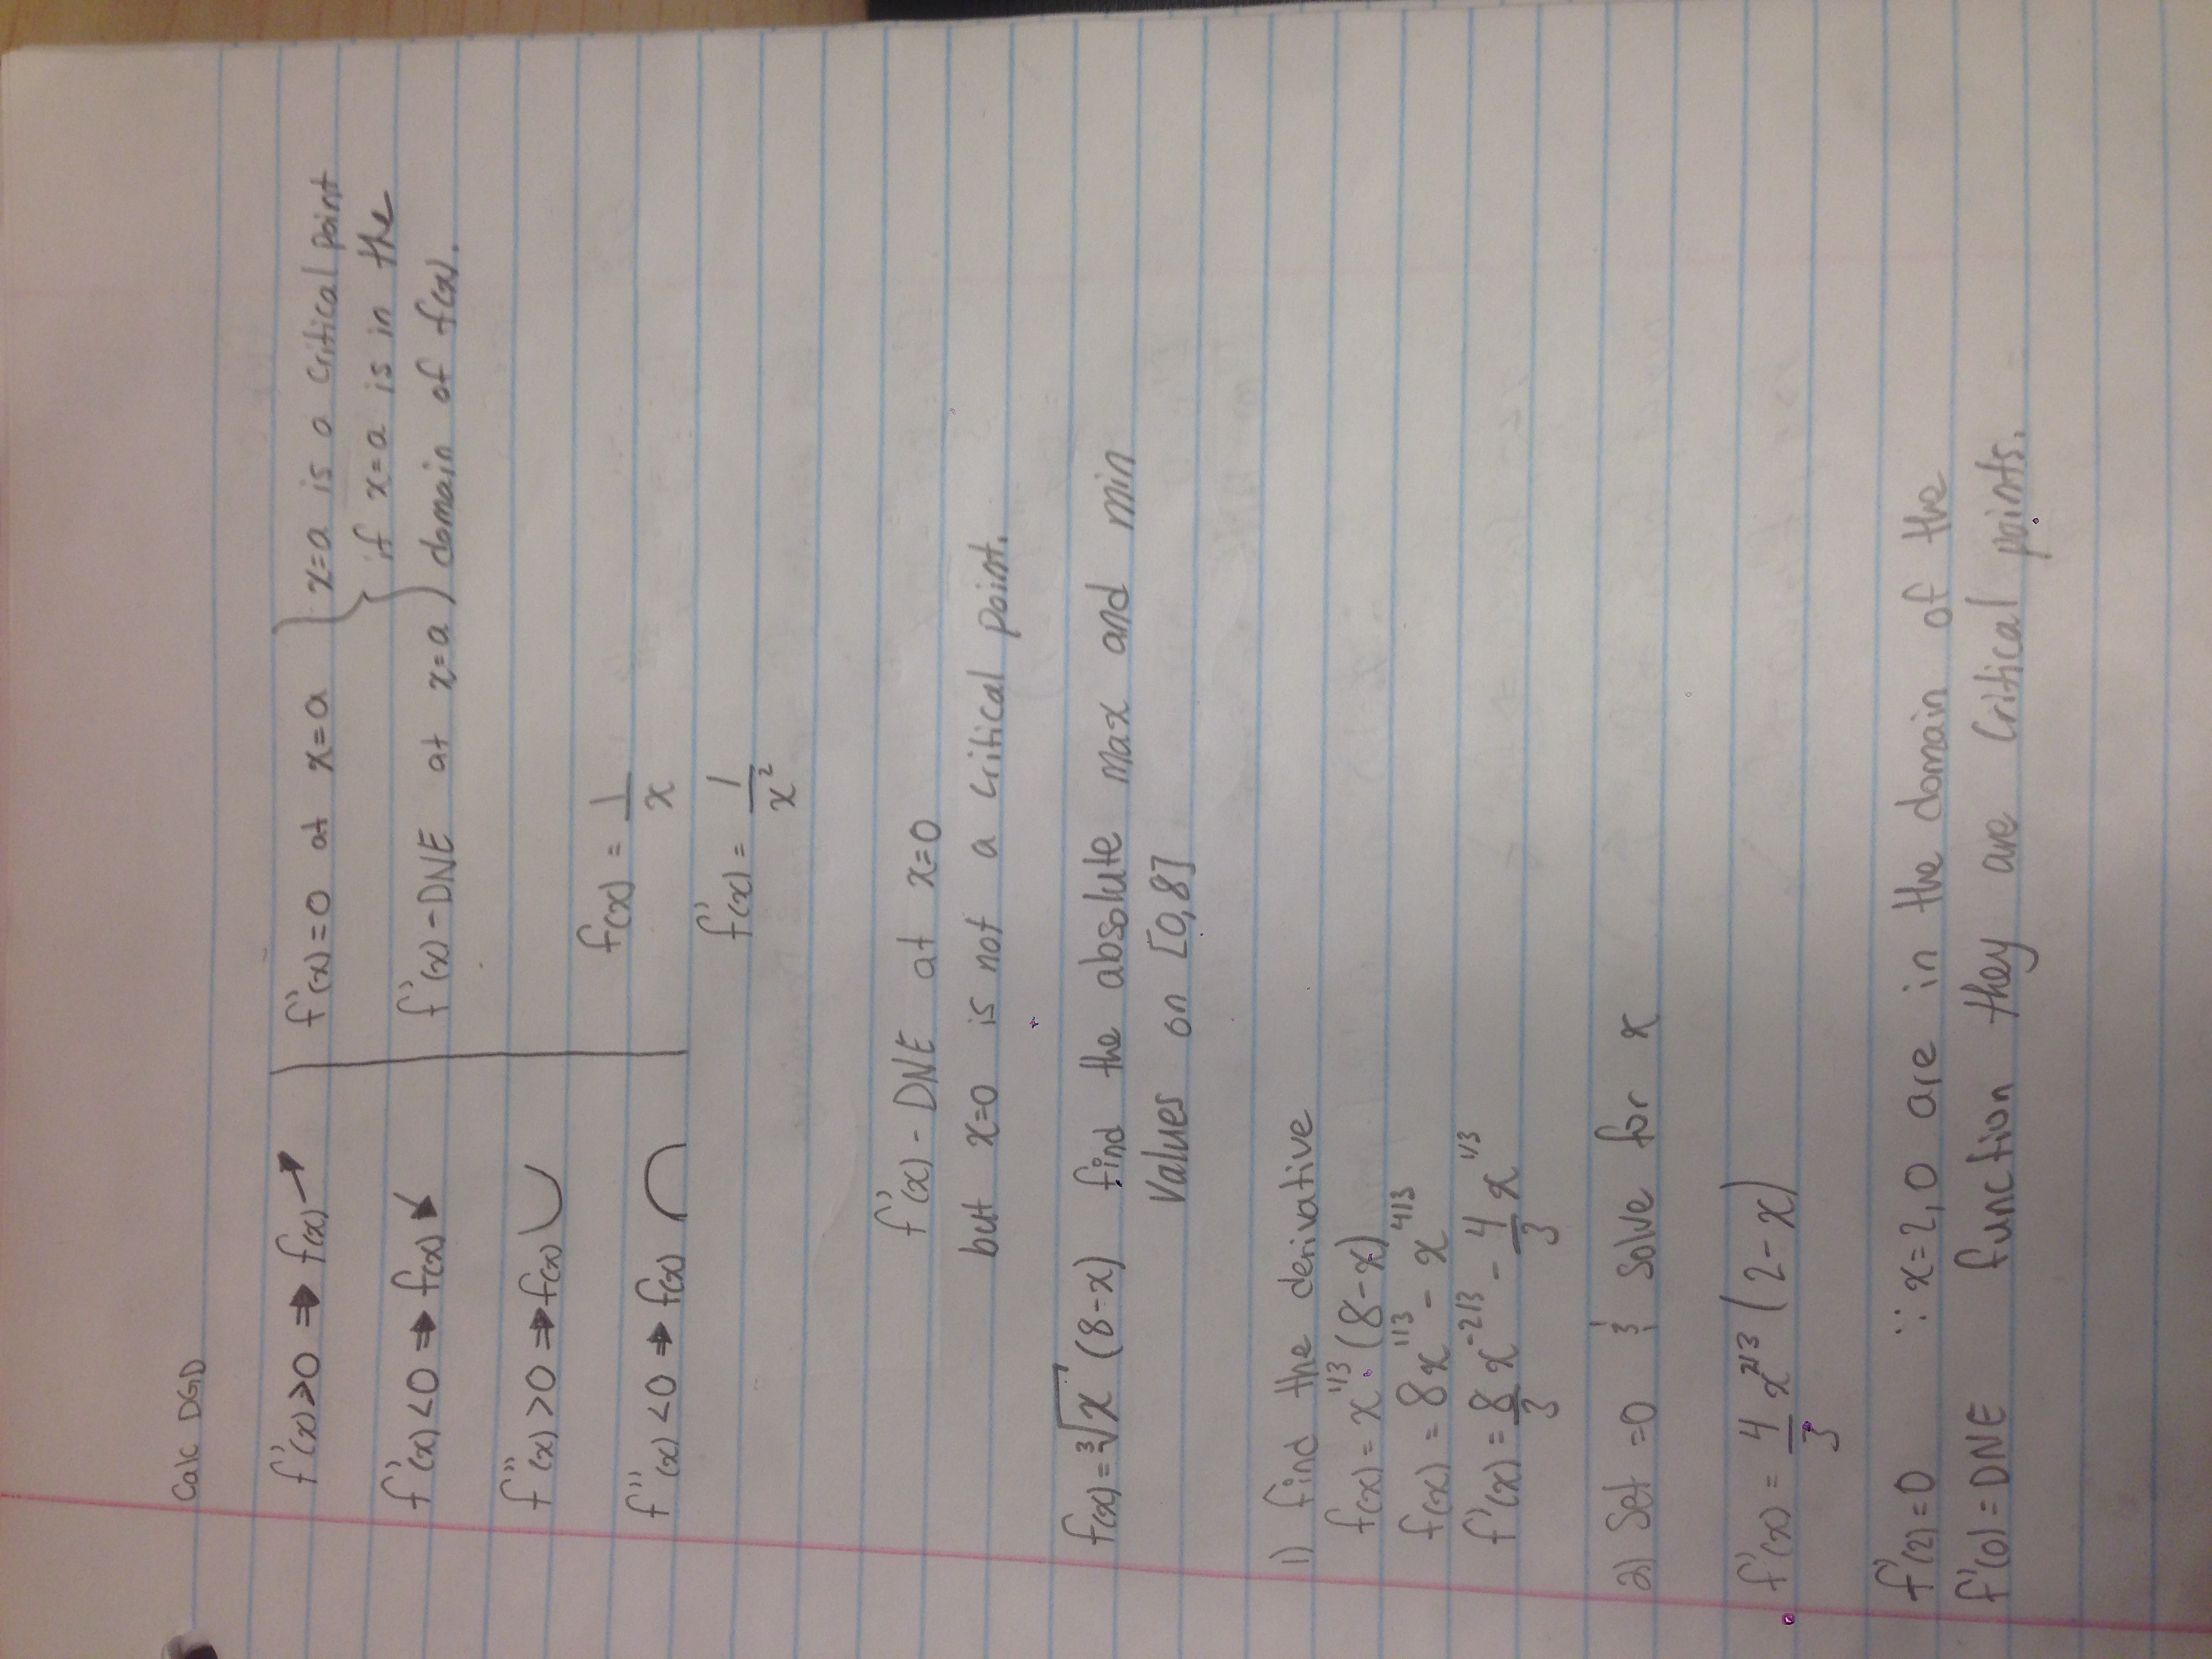 Calc DGD
f'(x)>0 ⇒ f(x) ↗ f'(x)=0 at x=a } x=a is a critical point
if x=a is in the
f'(x)<0 ⇒ f(x) ↘ f'(x)-DNE at x=a ) domain of f(x).
f''(x)>0 ⇒ f(x) ∪
f(x) = 1/x
f''(x)<0 ⇒ f(x) ∩
f'(x) = 1/x²
f'(x) - DNE at x=0
but x=0 is not a critical point.
f(x)=³√x (8-x) find the absolute max and min
values on [0,8]
1) find the derivative
f(x) = x^1/3 · (8-x)
f(x) = 8x^1/3 - x^4/3
f'(x) = 8/3 x^-2/3 - 4/3 x^1/3
2) Set =0 & solve for x
f'(x) = 4/3 x^2/3 (2-x)
f'(2)=0 ∵ x=2,0 are in the domain of the
f'(0)=DNE function they are critical points.